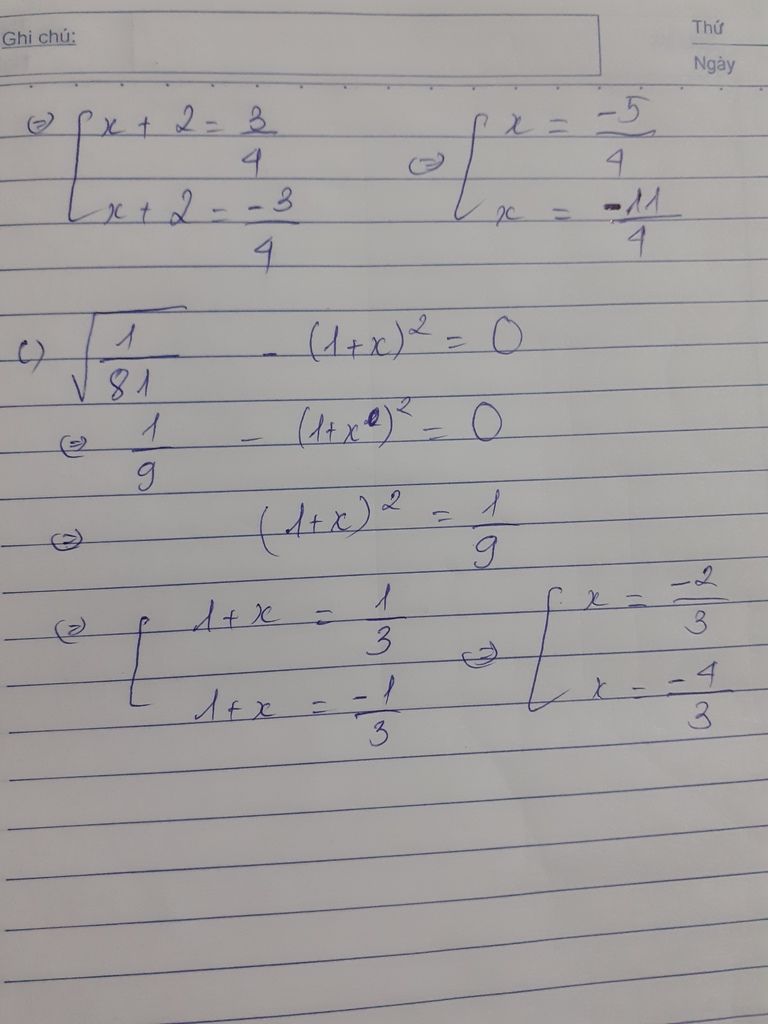 Ghi chú:
Thứ
Ngày
⇔ [ x + 2 = 3/4 ⇔ [ x = -5/4
x + 2 = -3/4 x = -11/4
c) √(1/81) - (1+x)² = 0
⇔ 1/9 - (1+x)² = 0
⇔ (1+x)² = 1/9
⇔ [ 1+x = 1/3 ⇔ [ x = -2/3
1+x = -1/3 x = -4/3